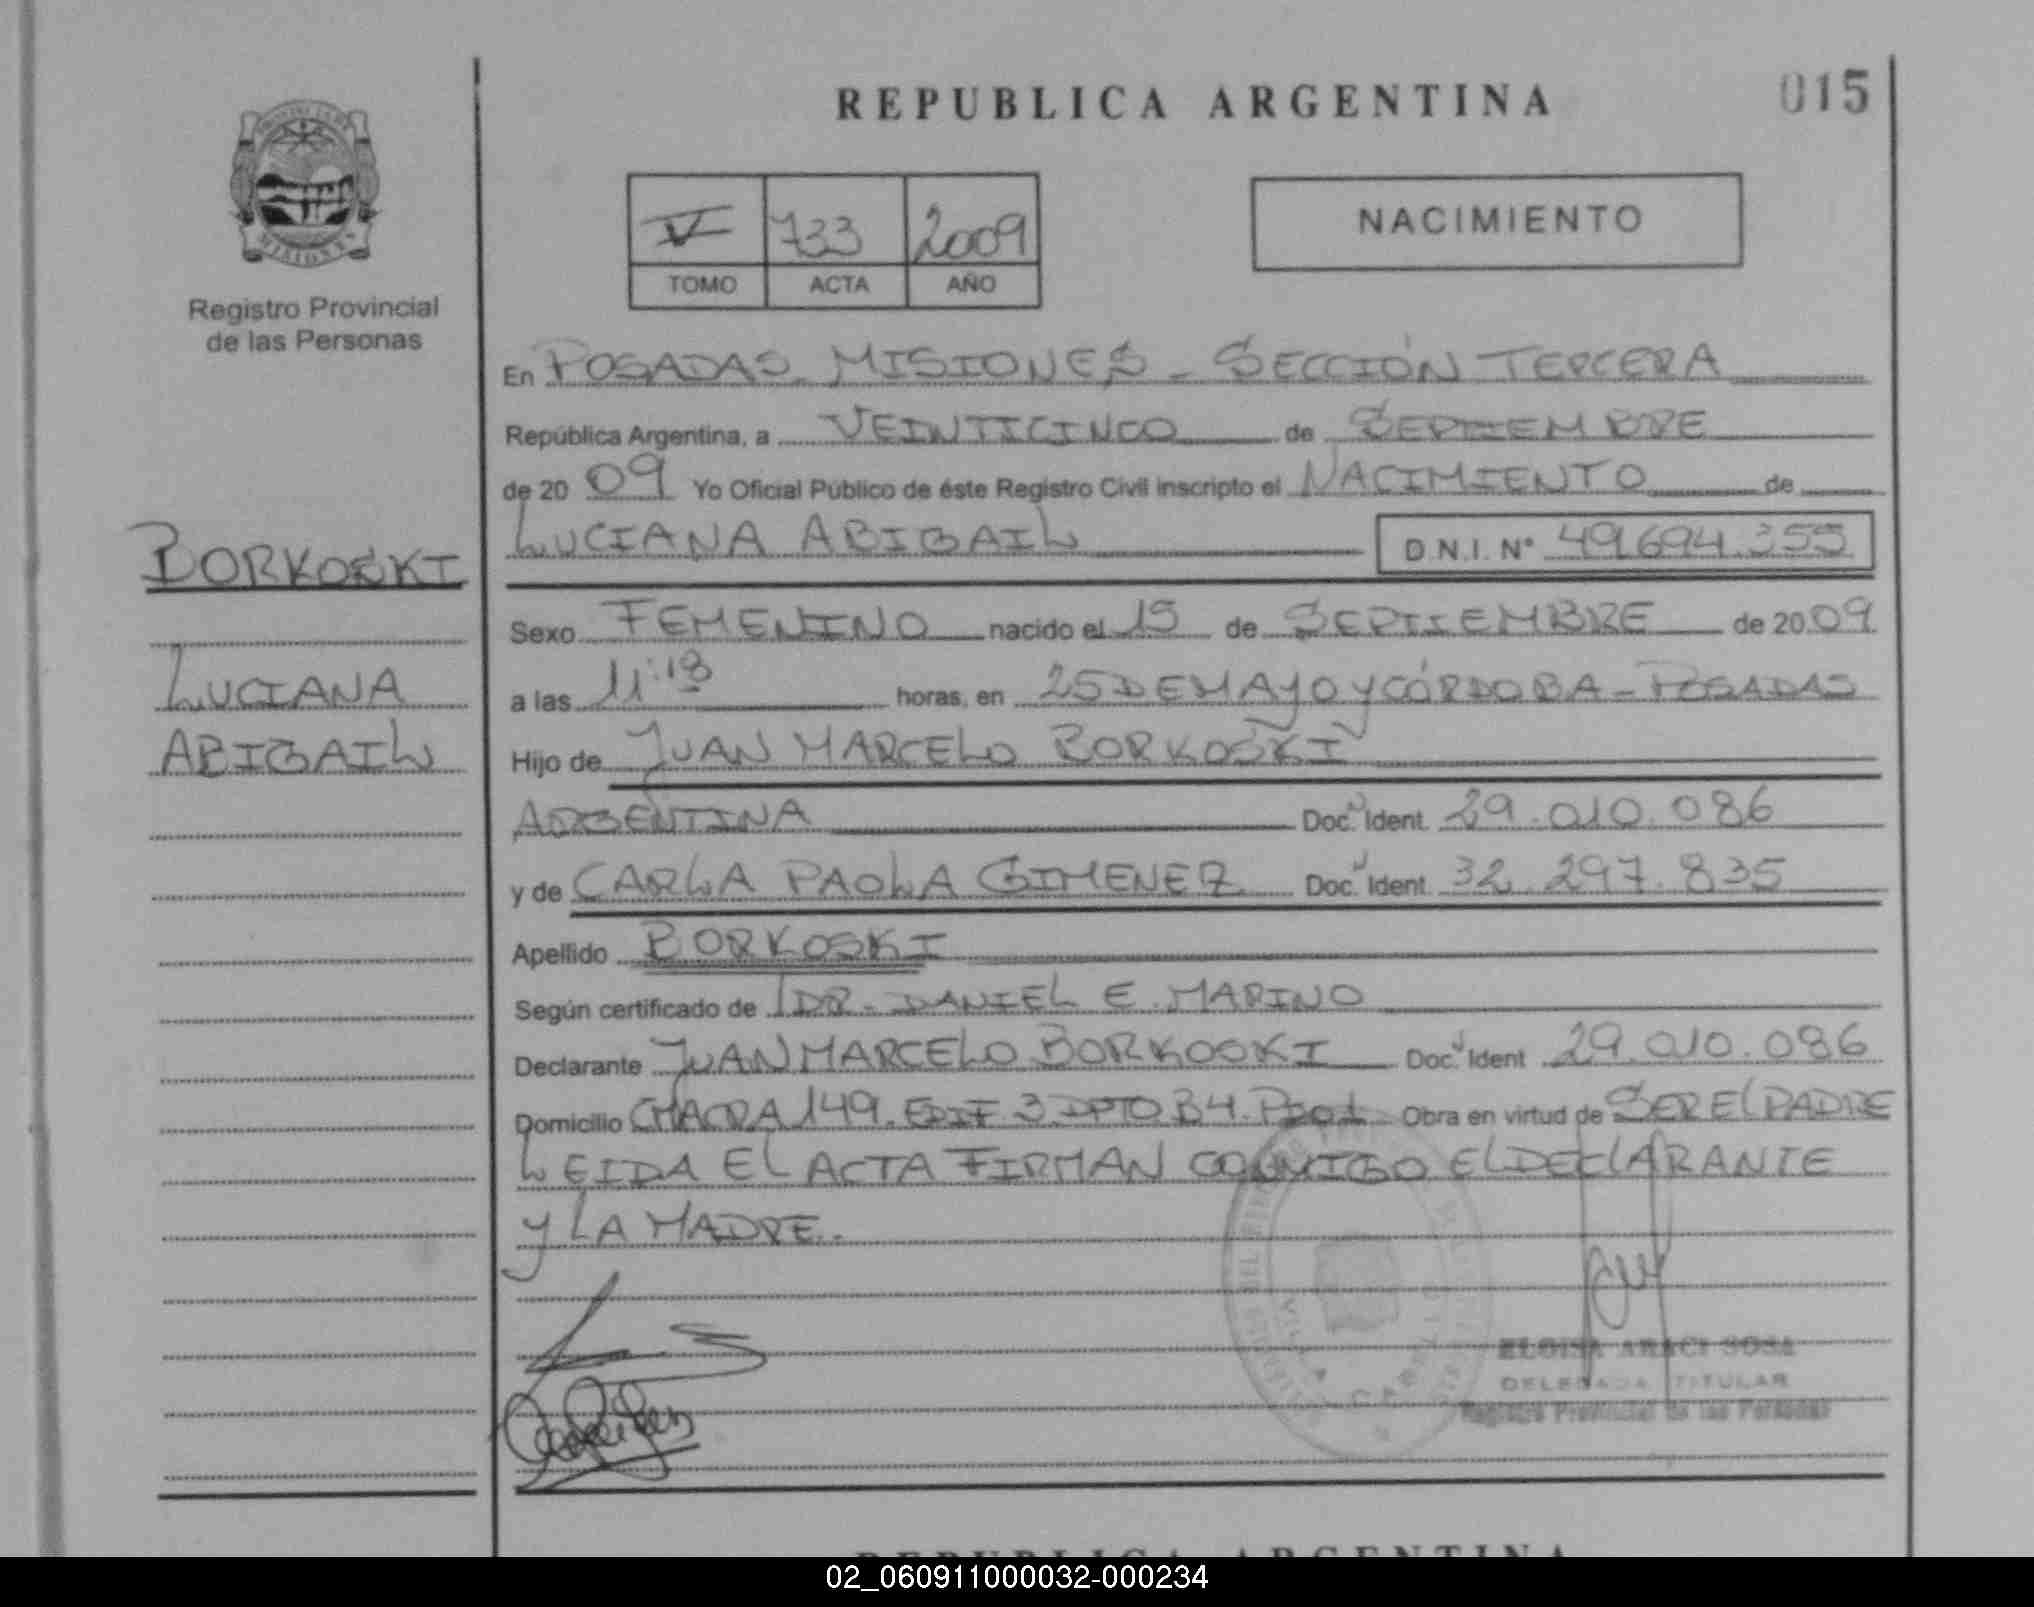 REPUBLICA ARGENTINA
015
V 733 2009
TOMO ACTA AÑO
NACIMIENTO
Registro Provincial
de las Personas
BORKOSKI
LUCIANA
ABIGAIL
En POSADAS - MISIONES - SECCIÓN TERCERA
República Argentina, a VEINTICINCO de SEPTIEMBRE
de 20 09 Yo Oficial Público de éste Registro Civil inscripto el NACIMIENTO de
LUCIANA ABIGAIL D.N.I. N° 49.694.355
Sexo FEMENINO nacido el 15 de SEPTIEMBRE de 20 09
a las 11:18 horas, en 25 DE MAYO Y CÓRDOBA - POSADAS
Hijo de JUAN MARCELO BORKOSKI
ARGENTINA Doc. Ident. 29.010.086
y de CARLA PAOLA GIMENEZ Doc. Ident. 32.297.835
Apellido BORKOSKI
Según certificado de DR. DANIEL E. MARINO
Declarante JUAN MARCELO BORKOSKI Doc. Ident. 29.010.086
Domicilio CHACRA 149. EDIF. 3 DPTO. B4. Obra en virtud de SER EL PADRE
LEIDA EL ACTA FIRMAN CONMIGO EL DECLARANTE
Y LA MADRE.
ELOISA ARACI SOSA
DELEGADA TITULAR
Registro Provincial de las Personas
REPUBLICA ARGENTINA
02_060911000032-000234